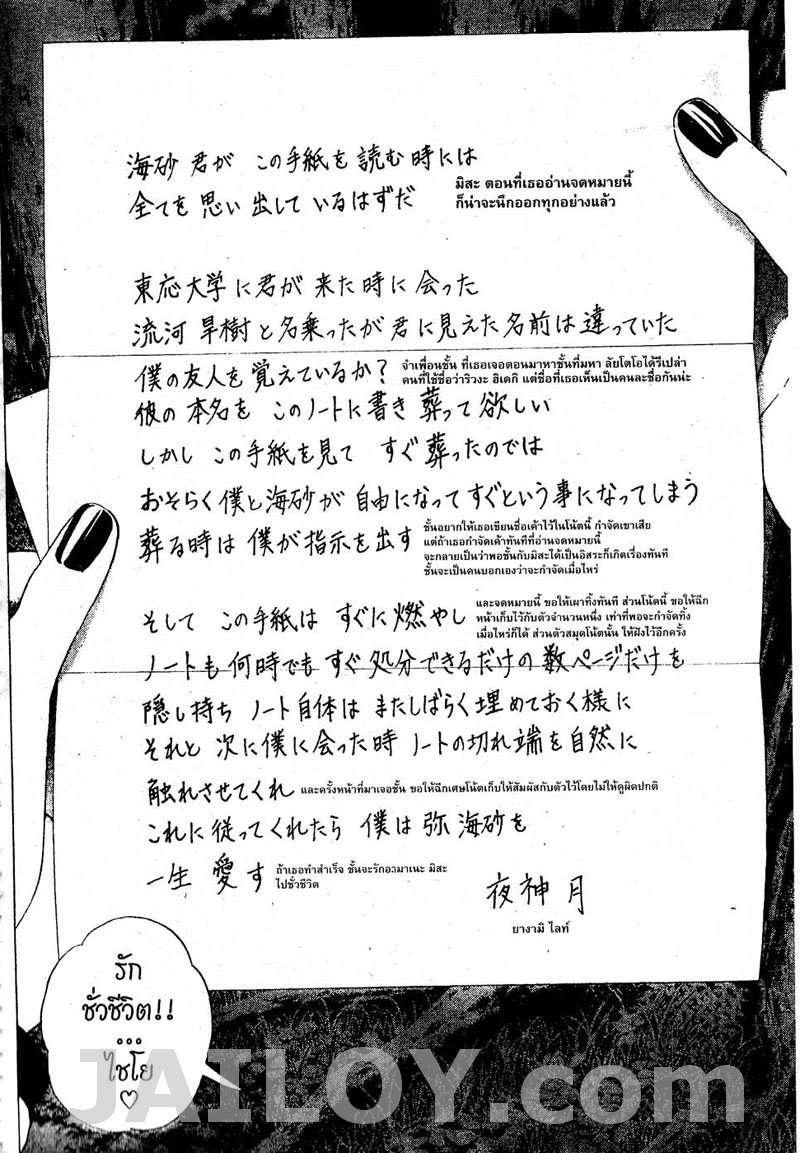 海砂 君が この手紙を 読む 時には
全てを 思い 出して いるはずだ
มิสะ ตอนที่เธออ่านจดหมายนี้
ก็น่าจะนึกออกทุกอย่างแล้ว
東応大学に君が 来た 時に 会った
流河 旱樹と名乗ったが君に見えた名前は違っていた
僕の友人を覚えているか?
จำเพื่อนชั้น ที่เธอเจอตอนมาหาชั้นที่มหา ลัยโตโอได้รึเปล่า
คนที่ใช้ชื่อว่าริวงะ ฮิเดกิ แต่ชื่อที่เธอเห็นเป็นคนละชื่อกันน่ะ
彼の本名を このノートに書き 葬って 欲しい
しかし この手紙を見て すぐ 葬ったのでは
おそらく僕と海砂が 自由になってすぐという事になってしまう
葬る時は 僕が指示を出す
ชั้นอยากให้เธอเขียนชื่อเค้าไว้ในโน้ตนี้ กำจัดเขาเสีย
แต่ถ้าเธอกำจัดเค้าทันทีที่อ่านจดหมายนี้
จะกลายเป็นว่าพอชั้นกับมิสะได้เป็นอิสระก็เกิดเรื่องทันที
ชั้นจะเป็นคนบอกเองว่าจะกำจัดเมื่อไหร่
そして この手紙は すぐに燃やし
และจดหมายนี้ ขอให้เผาทิ้งทันที ส่วนโน้ตนี้ ขอให้ฉีก
หน้าเก็บไว้กับตัวจำนวนหนึ่ง เท่าที่พอจะกำจัดทิ้ง
เมื่อไหร่ก็ได้ ส่วนตัวสมุดโน้ตนั้น ให้ฝังไว้อีกครั้ง
ノートも 何時でも すぐ 処分できるだけの 数ページだけを
隠し持ち ノート自体は またしばらく 埋めておく様に
それと 次に僕に会った時 ノートの切れ端を自然に
触れさせてくれ
และครั้งหน้าที่มาเจอชั้น ขอให้ฉีกเศษโน้ตเก็บให้สัมผัสกับตัวไว้โดยไม่ให้ดูผิดปกติ
これに 従ってくれたら 僕は 弥 海砂を
一生 愛す
ถ้าเธอทำสำเร็จ ชั้นจะรักอามาเนะ มิสะ
ไปชั่วชีวิต
夜神 月
ยางามิ ไลท์
รัก
ชั่วชีวิต!!
...
ไชโย
♡
JAILOY.com